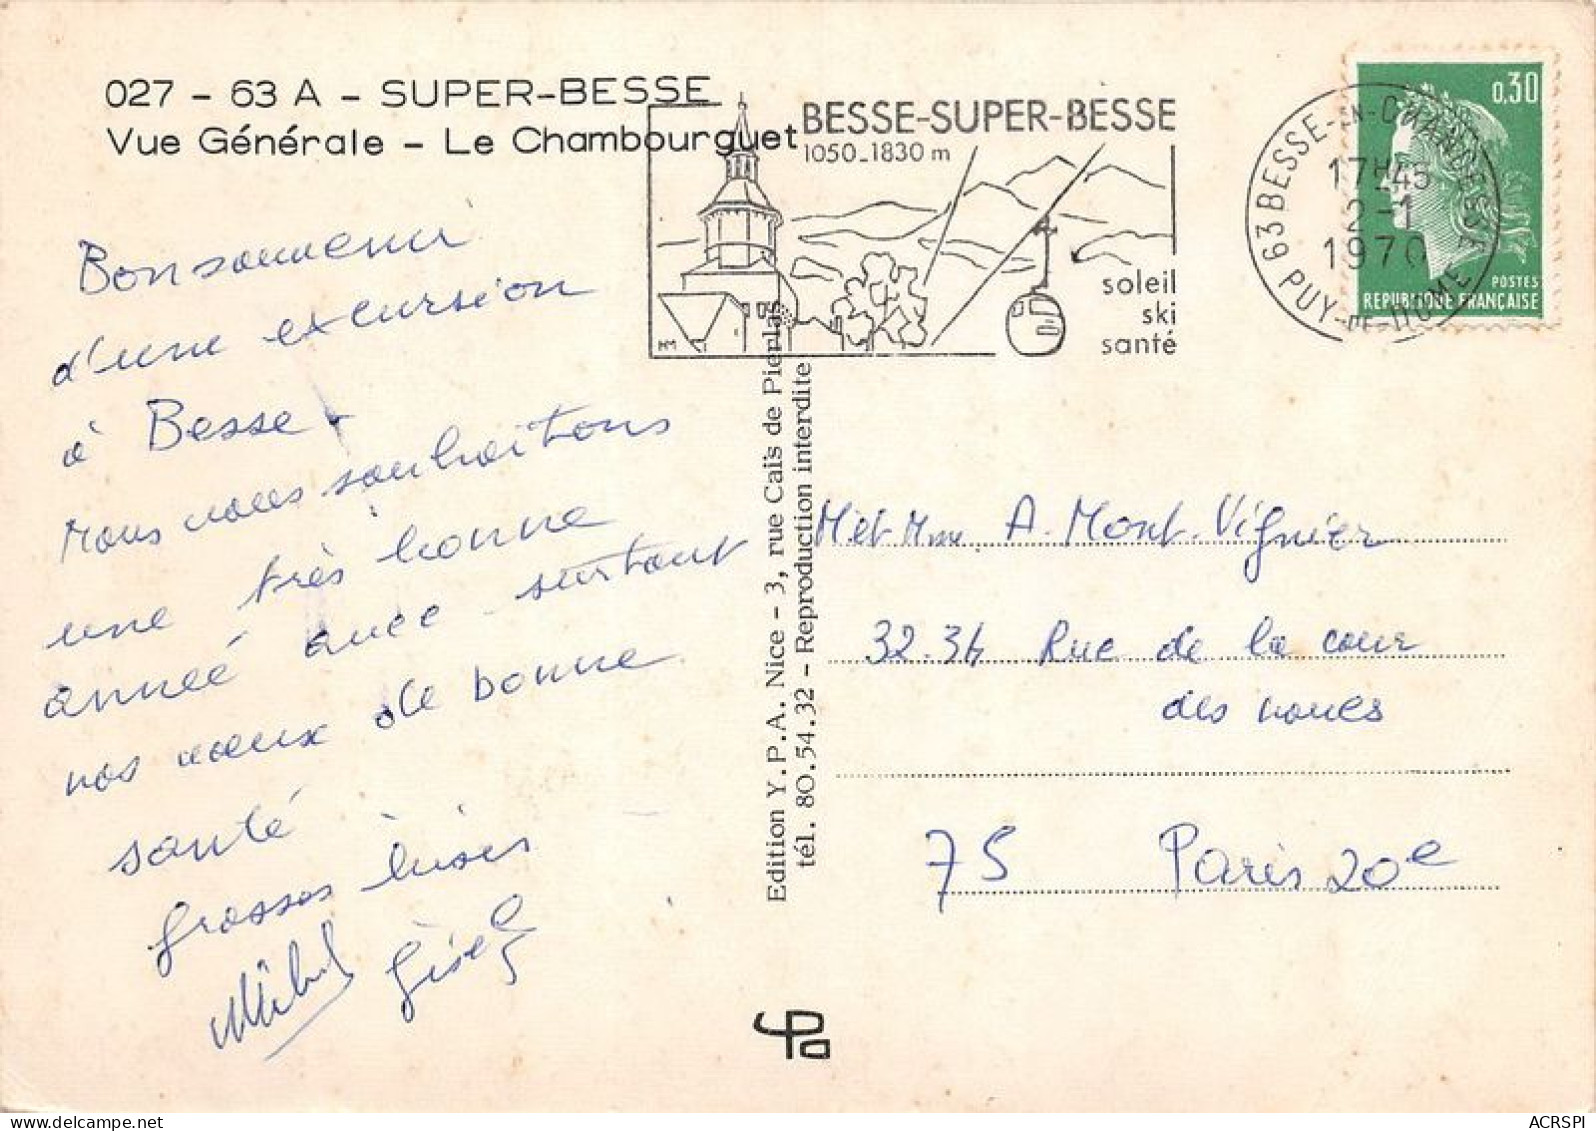 027 - 63 A - SUPER-BESSE
Vue Générale - Le Chambourguet
BESSE-SUPER-BESSE
1050-1830 m
soleil
ski
santé
HM
63 BESSE-EN-CHANDESSE
17H45
2-1
1970
PUY-DE-DOME
0,30
POSTES
REPUBLIQUE FRANÇAISE
Bon souvenir
d'une excursion
à Besse.
Nous vous souhaitons
une très bonne
année avec surtout
nos voeux de bonne
santé
grosses bises
Michel Gisèle
Edition Y.P.A. Nice - 3, rue Caïs de Pierlas
tél. 80.54.32 - Reproduction interdite
M et Mme A. Mont-Vignier
32.34 Rue de la cour
des noues
75 Paris 20e
ACRSPI